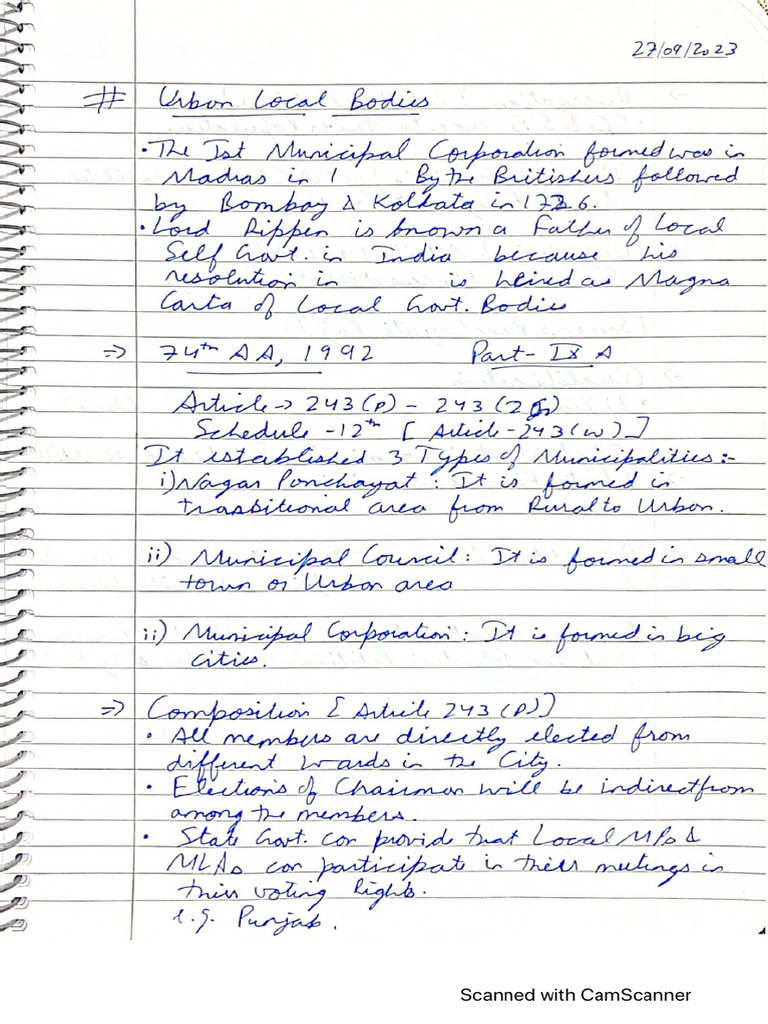 27/09/2023
# Urban Local Bodies
• The Ist Municipal Corporation formed was in
Madras in 1 By the Britishers followed
by Bombay & Kolkata in 1726.
• Lord Rippen is known a Father of Local
Self Govt. in India because his
resolution in is as Magna
Carta of Local Govt. Bodies
=> 74th AA, 1992 Part- IX A
Article -> 243(P) - 243(ZG)
Schedule -12th [Article-243(W)]
It established 3 Types of Municipalities :-
i) Nagar Panchayat : It is formed in
trasbitional area from Rural to Urban.
ii) Municipal Council : It is formed in small
town or Urban area
ii) Municipal Corporation : It is formed in big
cities.
=> Composition [Article 243(P)]
• All members are directly elected from
different wards in the City.
• Elections of Chairman will be indirect from
among the members.
• State Govt. can provide that Local MPs &
MLAs can participat in their meetings in
their voting Rights.
e.g. Punjab.
Scanned with CamScanner